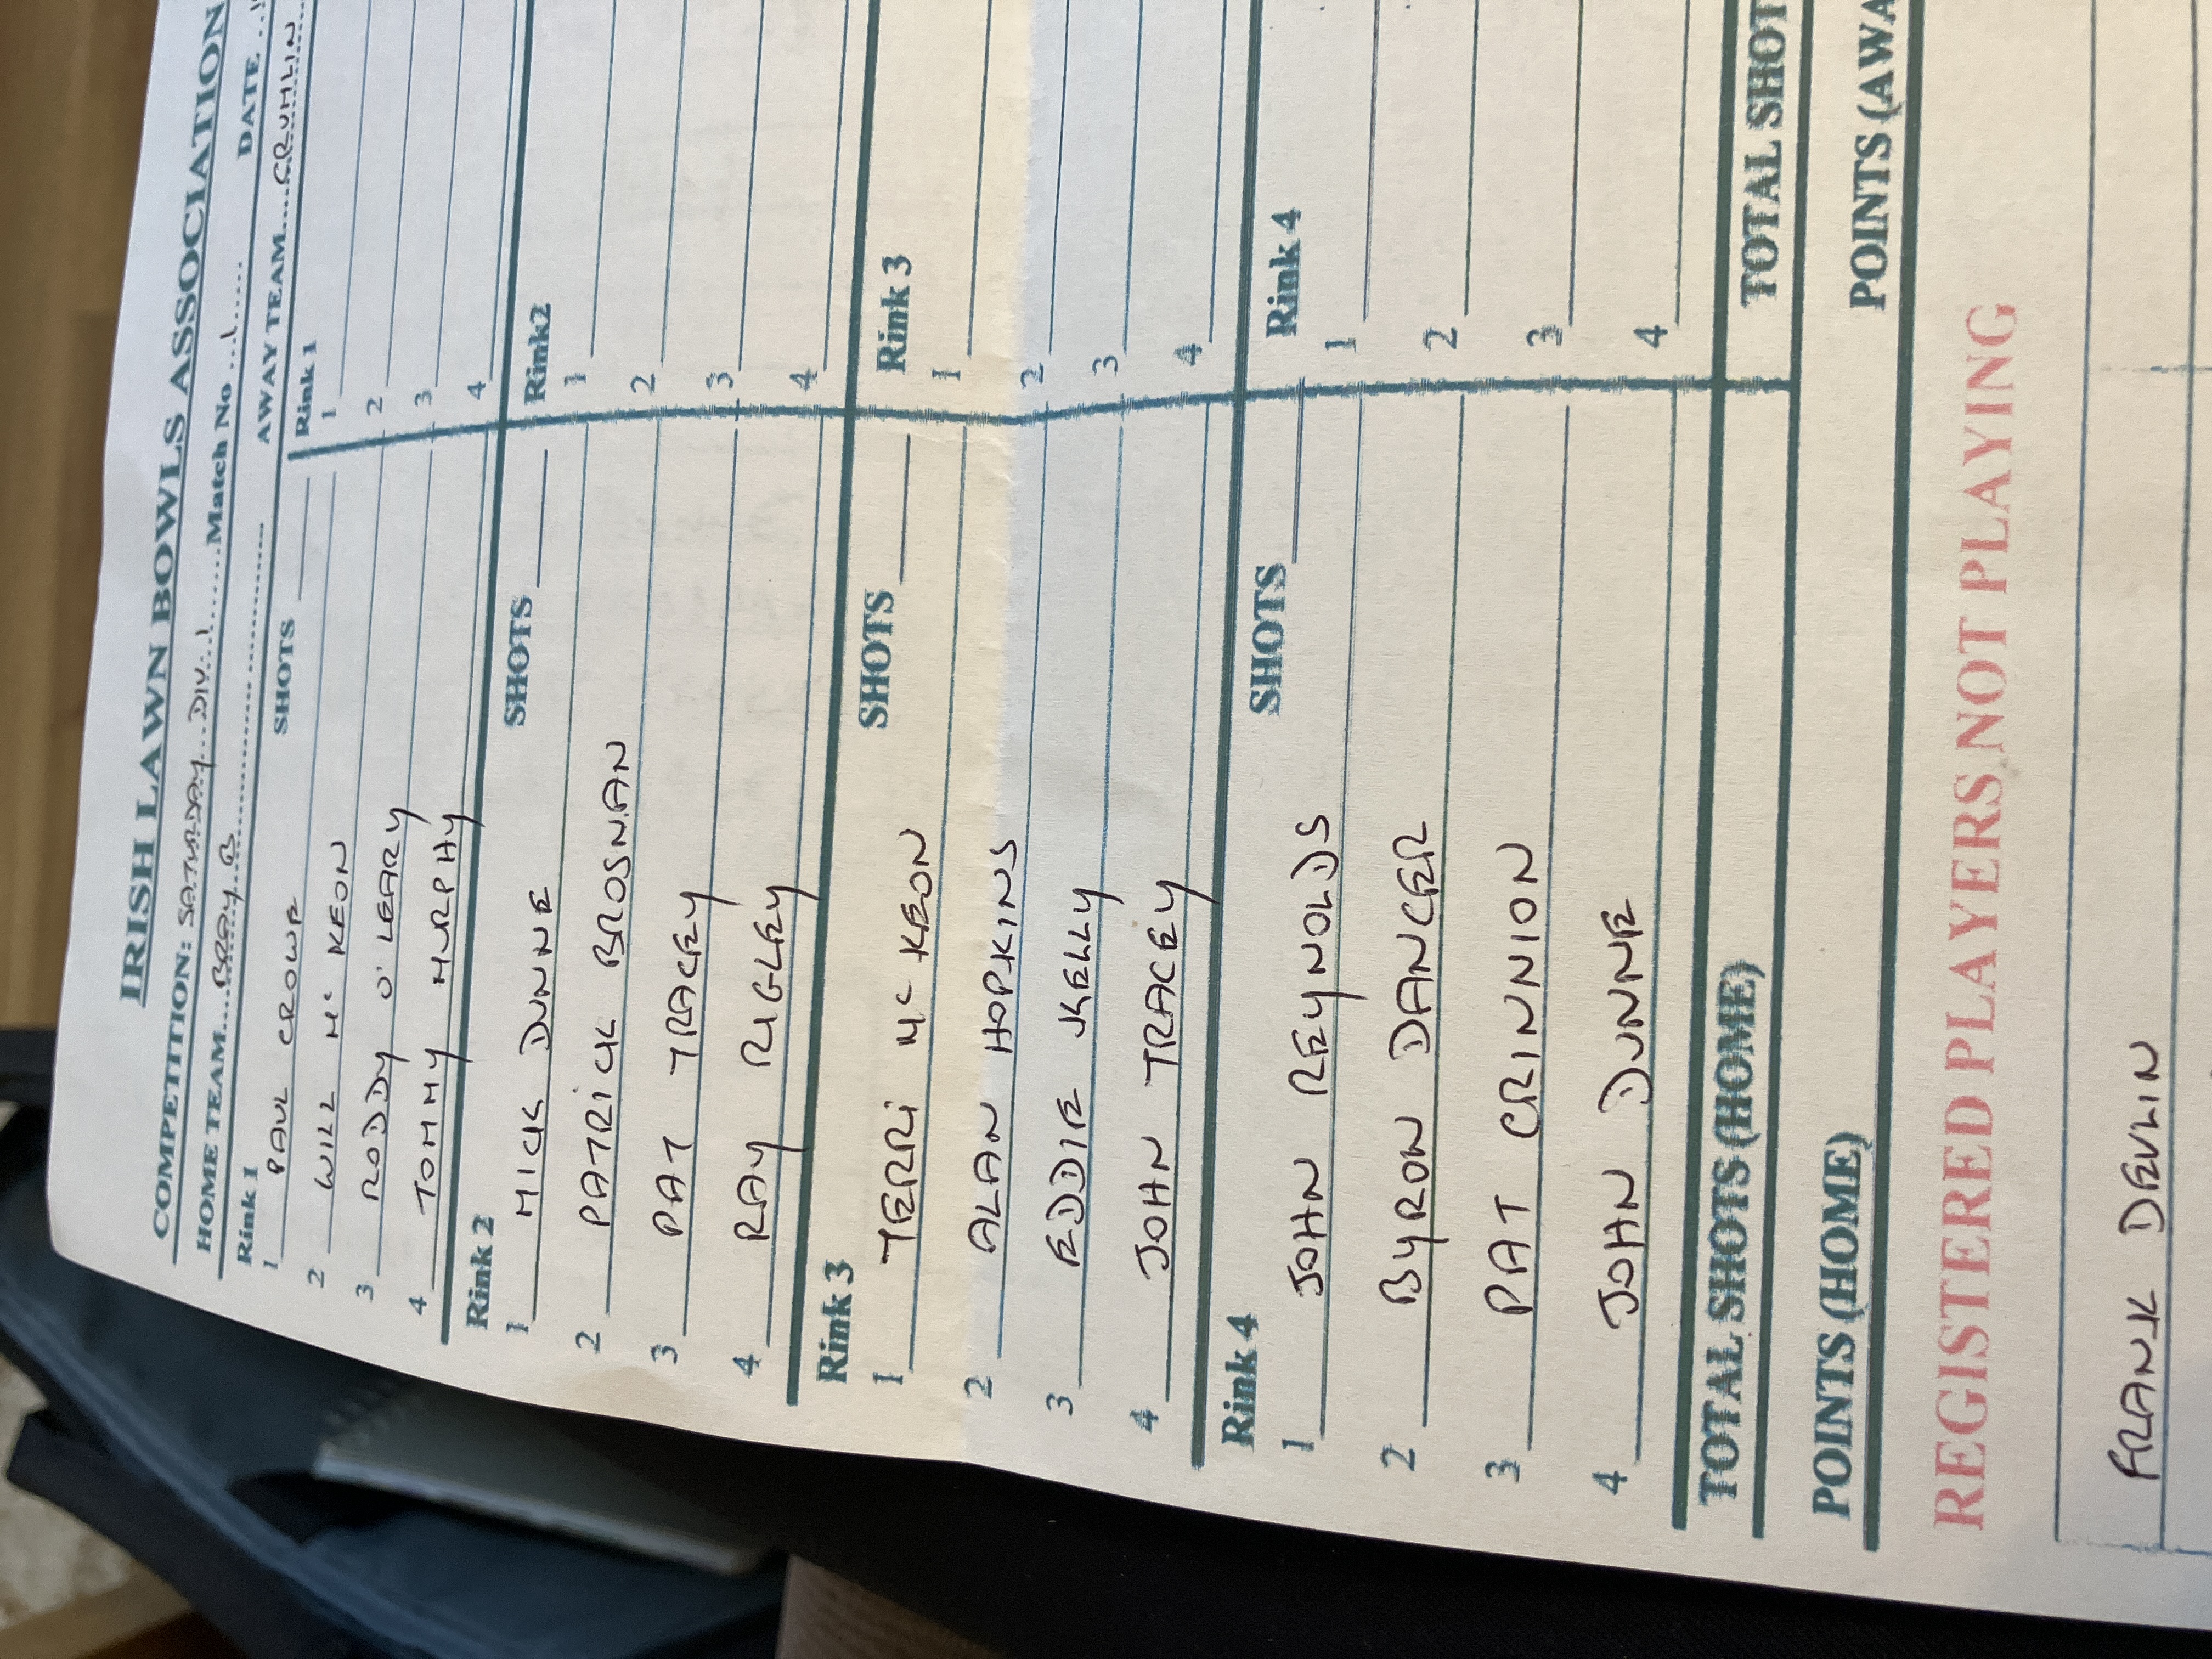 IRISH LAWN BOWLS ASSOCIATION
COMPETITION: SATURDAY DIV. 1 Match No ...1...... DATE
HOME TEAM....BRAY B.................... AWAY TEAM....CRUMLIN
Rink 1 SHOTS Rink 1
1 PAUL CROWE 1
2 WILL Mc KEON 2
3 RODDY O'LEARY 3
4 TOMMY MURPHY 4
Rink 2 SHOTS Rink2
1 MICK DUNNE 1
2 PATRICK BROSNAN 2
3 PAT TRACEY 3
4 RAY RIGLEY 4
Rink 3 SHOTS Rink 3
1 TERRI Mc KEON 1
2 ALAN HOPKINS 2
3 EDDIE KELLY 3
4 JOHN TRACEY 4
Rink 4 SHOTS Rink 4
1 JOHN REYNOLDS 1
2 BYRON DANCER 2
3 PAT CRINNION 3
4 JOHN DUNNE 4
TOTAL SHOTS (HOME) TOTAL SHOT
POINTS (HOME) POINTS (AWA
REGISTERED PLAYERS NOT PLAYING
FRANK DEVLIN